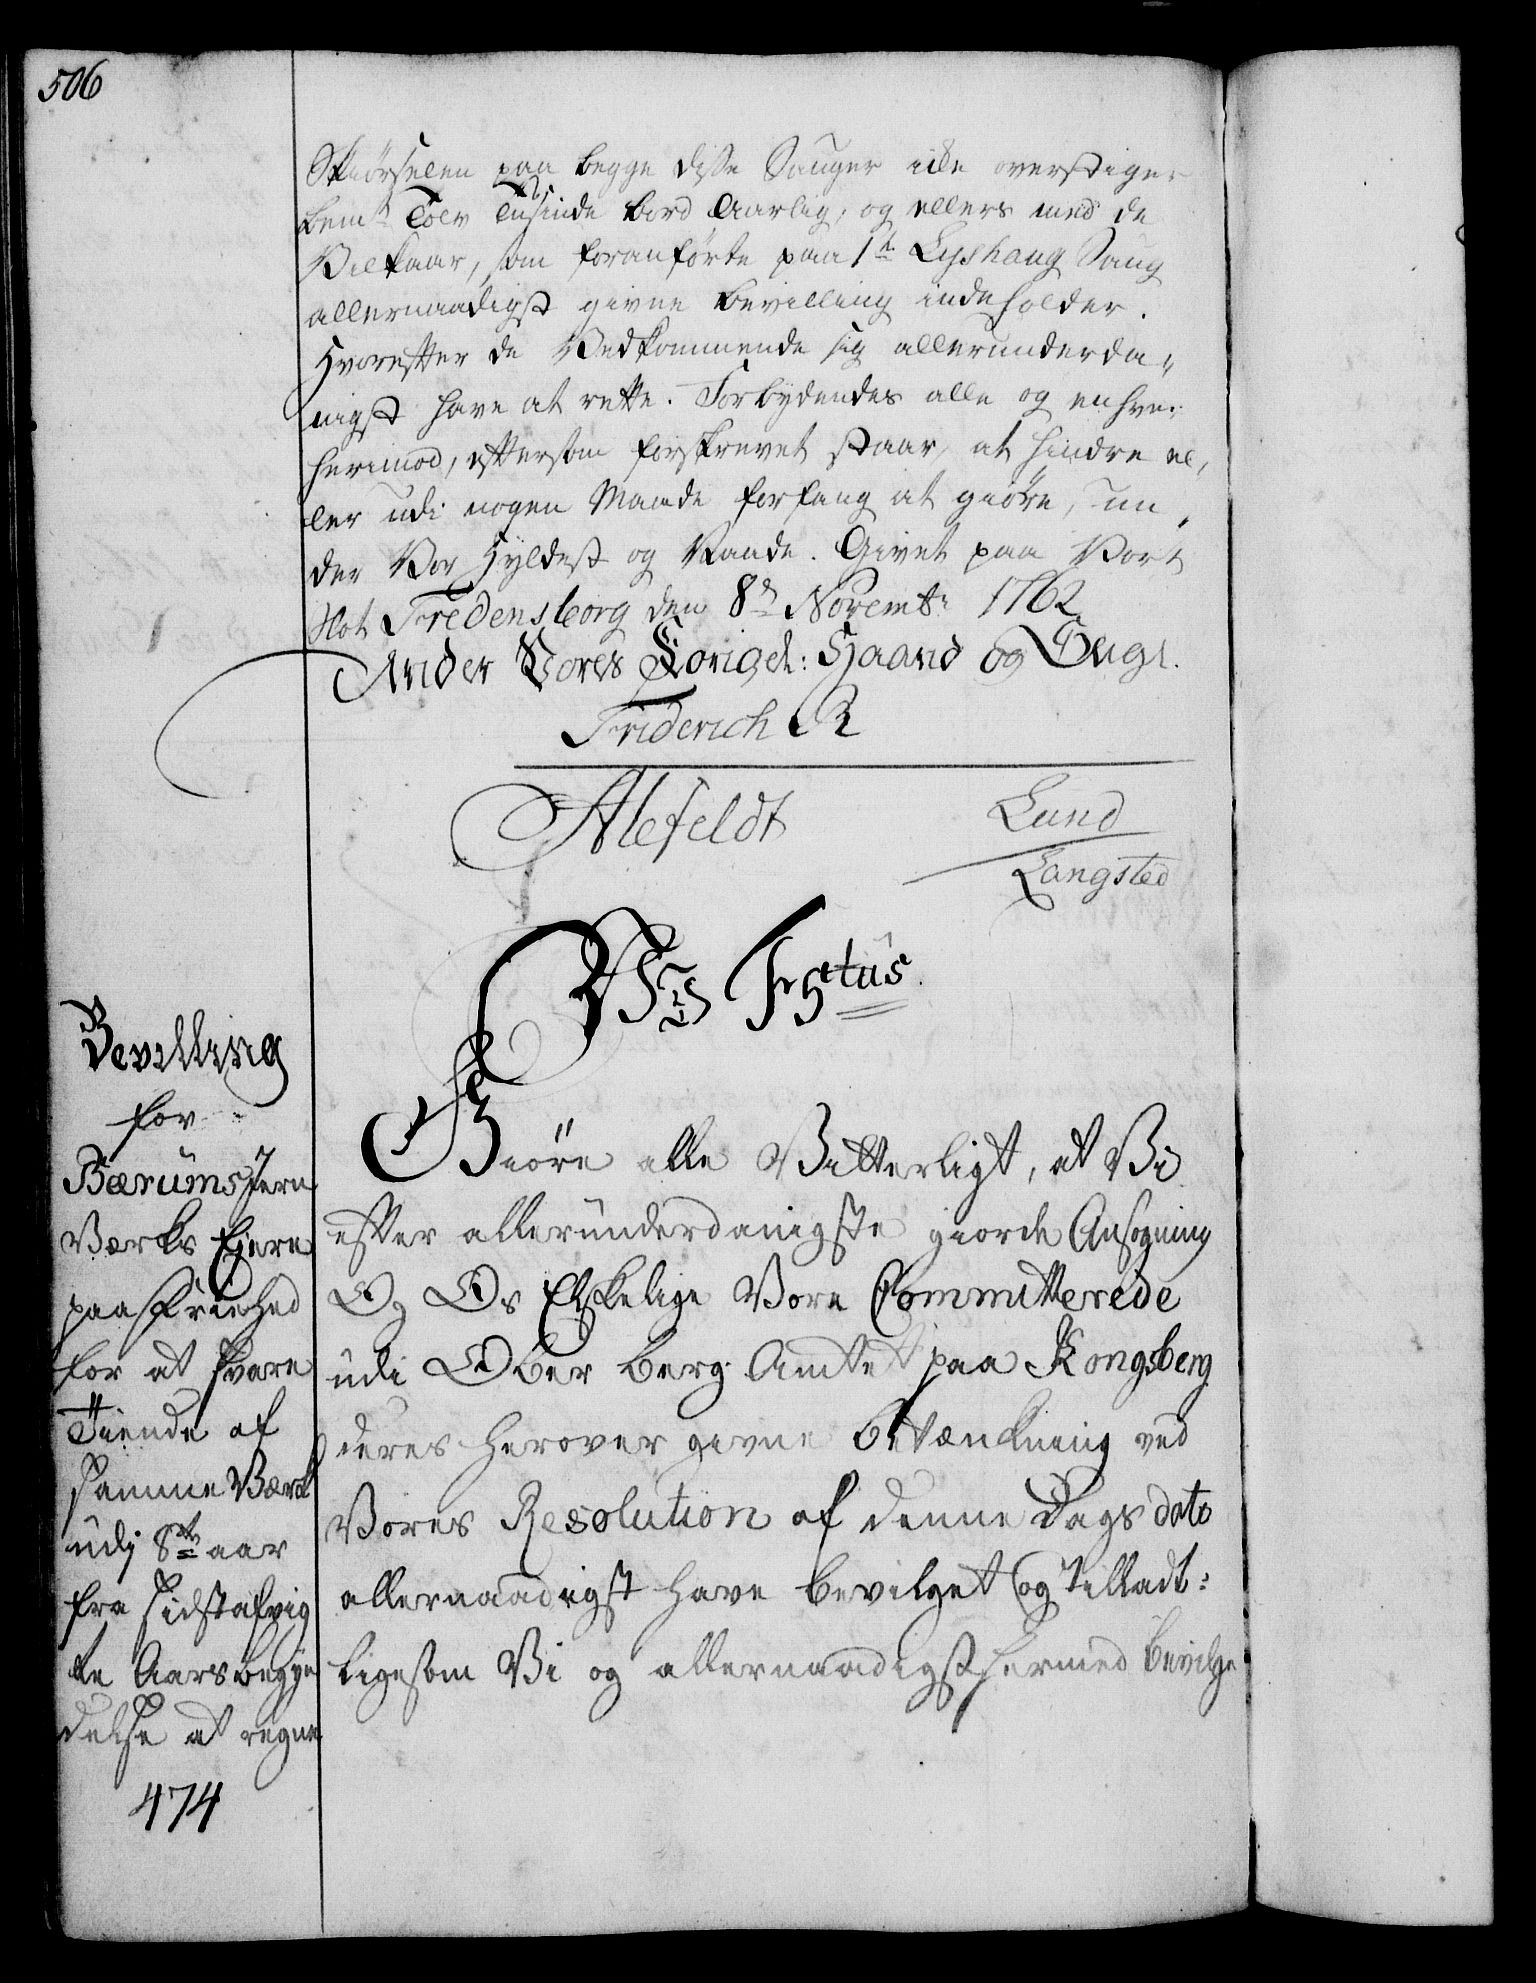 506
Skiörselen paa begge disse Sauger icke overstiger
bemte Tolv Tusinde bord Aarlig, og ellers med de
Vilkaar, som foranförte paa 1te Lyshaug Saug
allernaadigst givne bevilling indeholder.
Hvorefter de Vedkommende sig allerunderda„
nigst have at rette. Forbydendes alle og enhver
herimod, eftersom forskrevet staar, at hindre el„
ler udi nogen Maade forfang at giöre, un„
der Vor Hyldest og Naade. Givet paa Vort
Slot Fredensborg den 8de Novembr 1762
Under Vores Kongel: Haand og Segl.
Friderich R
Alefeldt
Lund
Langsted
Wii Fr 5tus.
Bevilling
for
Bærums Jern
Værks Ejere
paa Friehed
for at svare
Tiende af
samme Værk
udj 8te aar
fra sidstafvig
te Aars begyn
delse at regne
474
Giöre alle Vitterligt, at Vi
efter allerunderdanigste giorde Ansögning
Og Os Elskelige Vore Committerede
udi Ober Berg Amtet paa Kongsberg
deres herover givne betænkning ved
Vores Resolution af denne Dags dato
allernaadigst have bevilget og tilladt:
ligesom Vi og allernaadigst hermed bevilge